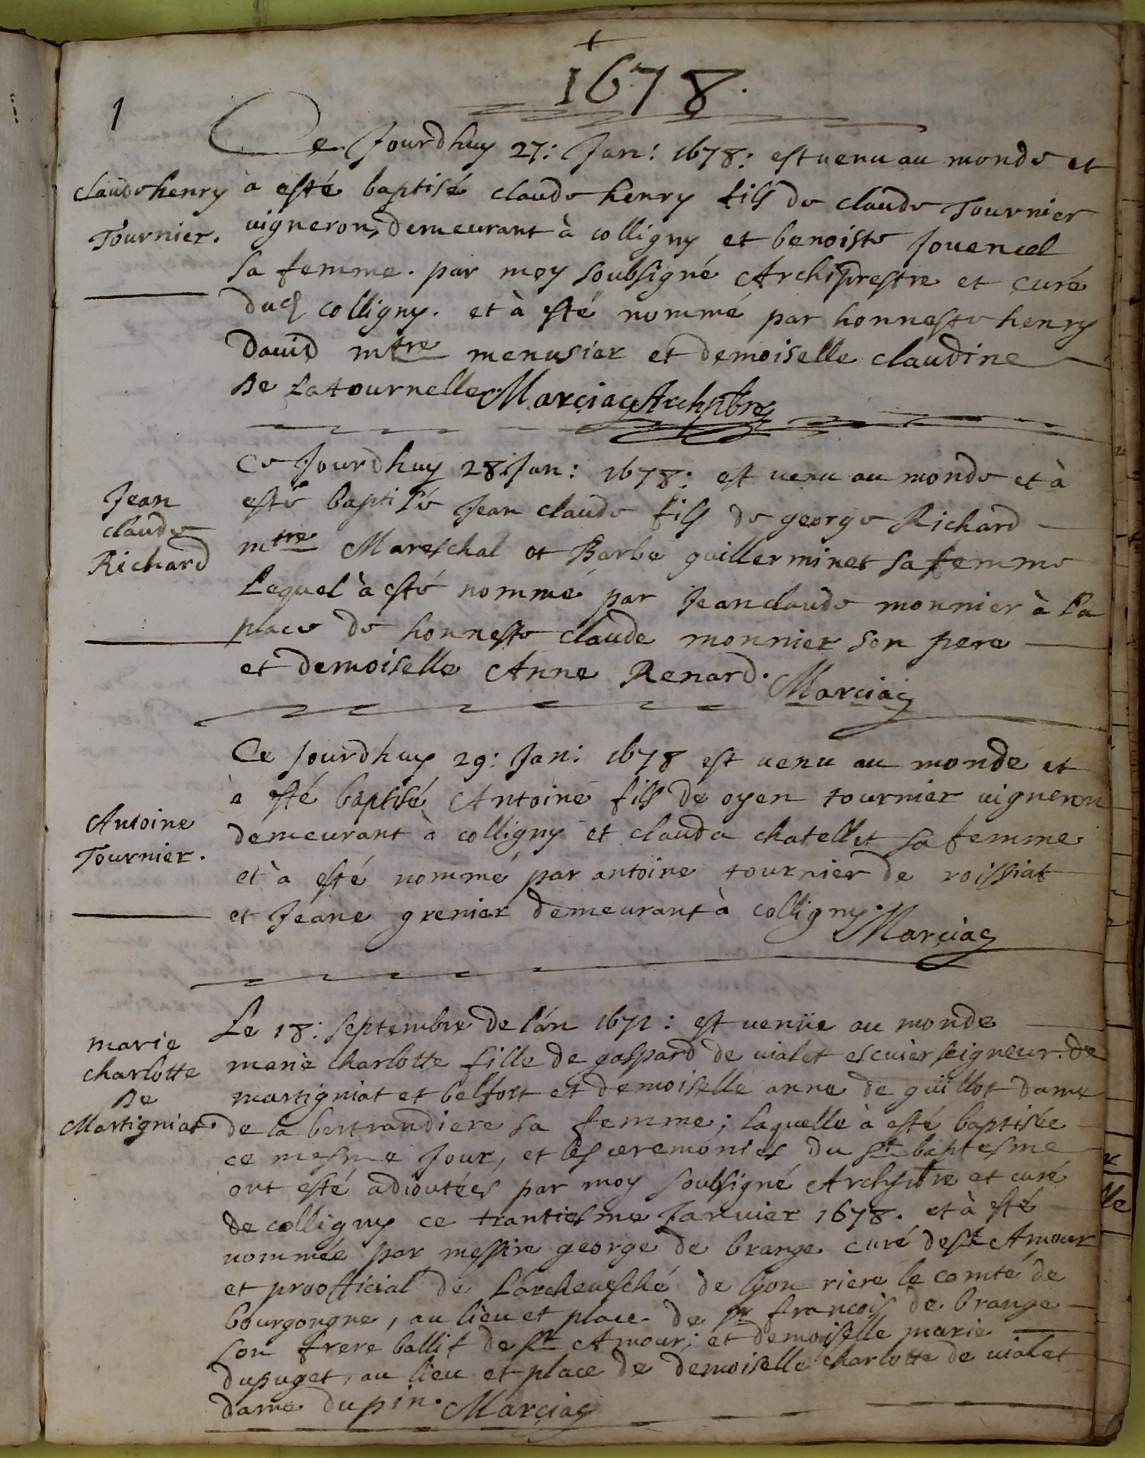 1678.
1
Ce Jourdhuy 27: Jan: 1678: est venu au monde et
Claude henry
Tournier.
à esté baptisé claude henry fils de claude Tournier
vigneron, demeurant à colligny et benoiste Jouencel
sa femme. par moy soubsigné Archiprestre et curé
dud colligny. et à esté nommé par honneste henry
David mtre menusier et demoiselle claudine
De La tournelle Marciac Archptre
Jean
claude
Richard
Ce Jourdhuy 28 Jan: 1678: est venu au monde et à
esté baptisé Jean claude fils de george Richard
mtre Mareschal et Barbe guillerminet sa femme
Lequel à esté nommé par Jean claude monnier à La
place de honneste claude monnier son pere
et demoiselle Anne Renard. Marciac
Antoine
Tournier.
Ce Jourdhuy 29: Jan: 1678 est venu au monde et
à esté baptisé Antoine fils de oyen tournier vigneron
demeurant à colligny et clauda chatellet sa femme
et à esté nommé par antoine tournier de roissiat
et Jeane grenier demeurant à colligny. Marciac
marie
charlotte
De
Martigniat.
Le 18: septembre de l'án 1672: est venüe au monde
marie charlotte fille de gaspard de vialet escuier seigneur de
martigniat et belfort et demoiselle anne de guillot dame
de la bertrandiere sa femme; laquelle à esté baptisée
ce mesme Jour, et les ceremonies du st baptesme
ont esté adioutées par moy soubsigné Archiptre et curé
de colligny ce trantiesme Januier 1678. et à esté
nommée par messire george de brange curé de st Amour
et proofficial de L'archeuesché de lyon riere le comté de
bourgongne, au lieu et place de sr francois de brange
son frere ballif de st Amour; et demoiselle marie
dupuget, au lieu et place de demoiselle charlotte de vialet
dame dupin. Marciac